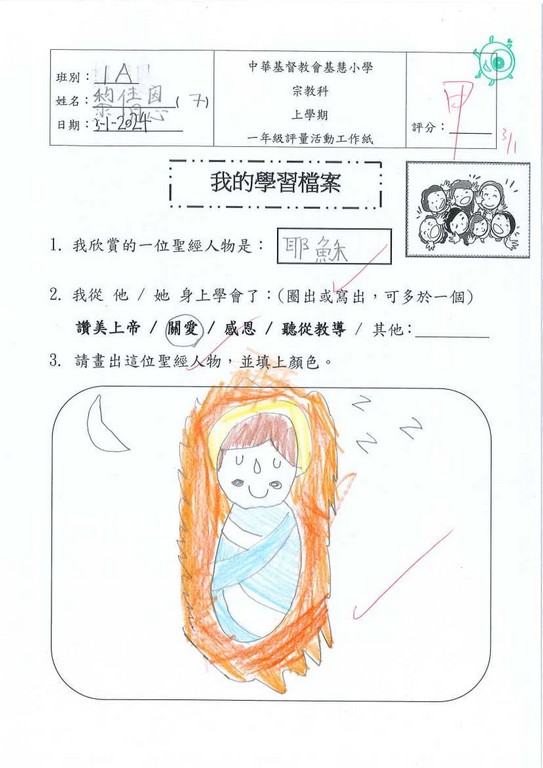 中華基督教會基慧小學
宗教科
上學期
一年級評量活動工作紙
班別：1A
姓名： (7)
日期：3-1-2024
評分： 甲
3/1
我的學習檔案
1. 我欣賞的一位聖經人物是： 耶穌
2. 我從 他 / 她 身上學會了：(圈出或寫出，可多於一個)
讚美上帝 / 關愛 / 感恩 / 聽從教導 / 其他：
3. 請畫出這位聖經人物，並填上顏色。
z z z